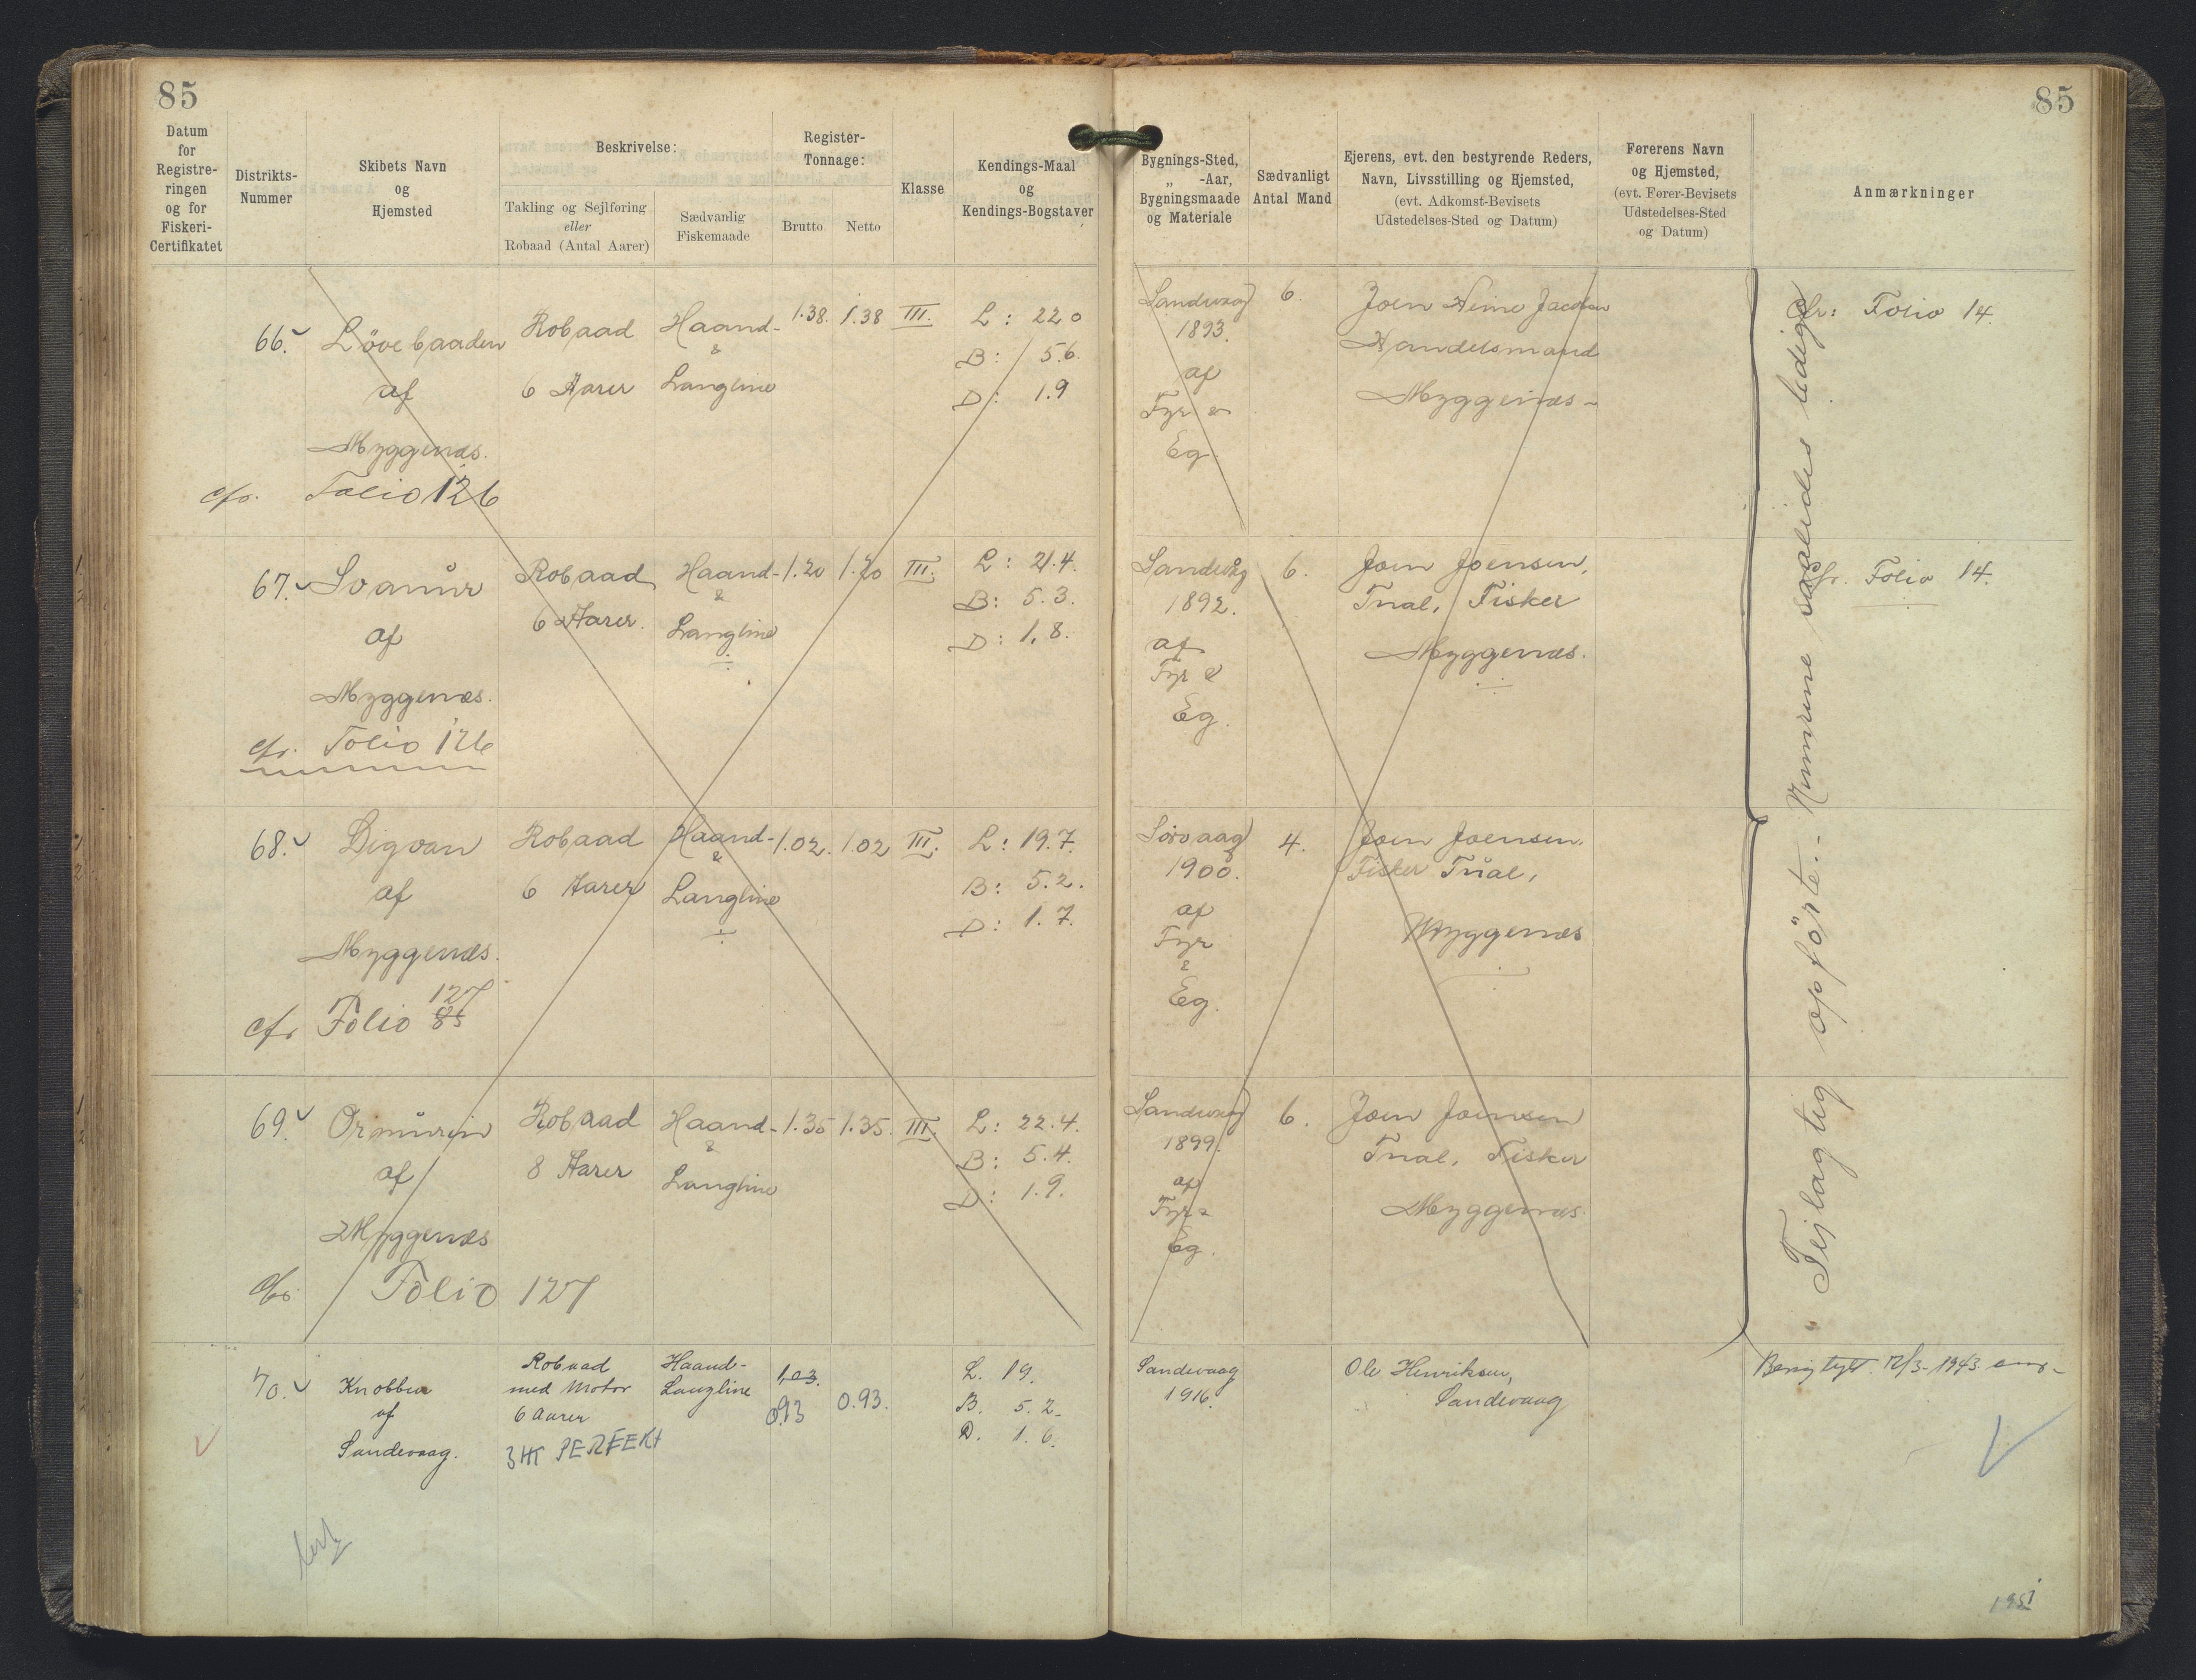 85
85
Datum
for
Registre-
ringen
og for
Fiskeri-
Certifikatet
Distrikts-
Nummer
Skibets Navn
og
Hjemsted
Beskrivelse:
Takling og Sejlføring
eller
Robaad (Antal Aarer)
Sædvanlig
Fiskemaade
Register-
Tonnage:
Brutto
Netto
Klasse
Kendings-Maal
og
Kendings-Bogstaver
Bygnings-Sted,
„ -Aar,
Bygningsmaade
og Materiale
Sædvanligt
Antal Mand
Ejerens, evt. den bestyrende Reders,
Navn, Livsstilling og Hjemsted,
(evt. Adkomst-Bevisets
Udstedelses-Sted og Datum)
Førerens Navn
og Hjemsted,
(evt. Fører-Bevisets
Udstedelses-Sted
og Datum)
Anmærkninger
66.
Lövebaaden
af
Myggenæs.
cfr. Folio 126
Robaad
6 Aarer
Haand-
&
Langline
1.38.
1.38
III.
L: 22.0
B: 5.6.
D: 1.9
Sandevaag
1893.
af
Fyr &
Eg.
6.
Joen Heine Jacobsen
Handelsmand
Myggenæs
cfr: Folio 14.
67.
Svanur
af
Myggenæs.
cfr. Folio 126
Robaad
6 Aarer.
Haand-
&
Langline
1.20
1.20
III.
L: 21.4.
B: 5.3.
D: 1.8.
Sandevåg
1892.
af
Fyr &
Eg.
6.
Joen Joensen,
Tual, Fisker
Myggenæs.
cfr. Folio 14.
68.
Digvan
af
Myggenæs.
127
cfr Folio 85
Robaad
6 Aarer
Haand-
&
Langline
1.02.
1.02
III.
L: 19.7.
B: 5.2.
D: 1.7.
Sörvaag
1900.
af
Fyr
&
Eg.
4.
Joen Joensen.
Fisker Tual,
Myggenæs
69.
Ormurin
af
Myggenæs
cfr. Folio 127
Robaad
8 Aarer
Haand-
&
Langline
1.35
1.35.
III.
L: 22.4.
B: 5.4.
D: 1.9.
Sandevaag
1899.
af
Fyr &
Eg.
6.
Joen Joensen
Tual, Fisker
Myggenæs.
Fejlagtig opförte. - Numrene saaledes ledige
70.
Knobbin
af
Sandevaag.
Robaad
med Motor
6 Aarer
3 HK PERFEKT
Haand-
Langline
1,03.
0.93
0.93.
L. 19.
B. 5.2.
D. 1.6.
Sandevaag
1916.
Ole Henriksen,
Sandevaag
1943
1951